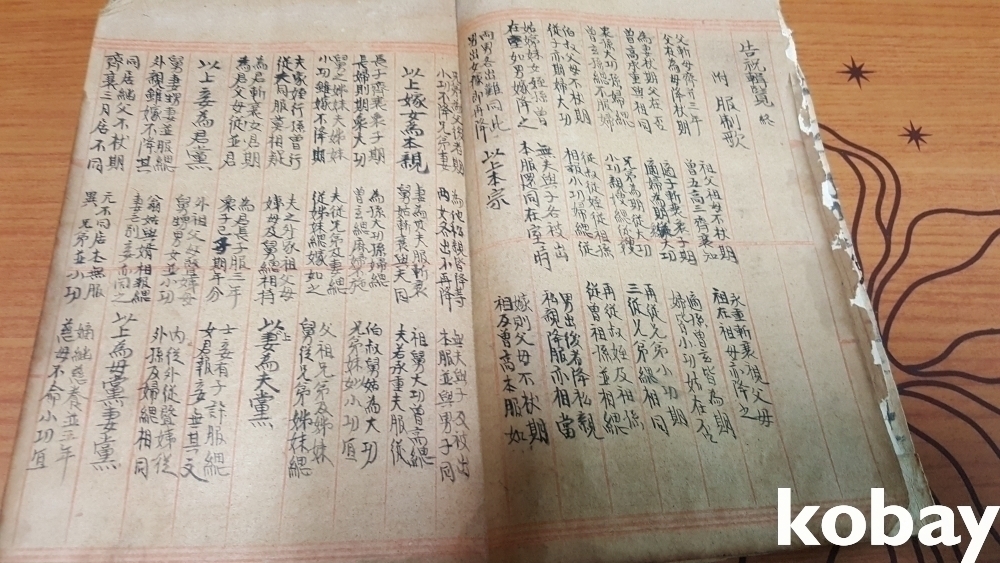 告祝輯覽 終
附 服制歌
父斬母齊并三年
父在爲母降杖期
祖父母不杖期
曾五高三齊衰知
承重斬衰視父母
祖在祖母亦降之
爲妻杖期父在否
曾高承重也相同
適子斬衰衆子期
適婦爲期衆大功
適孫曾玄皆爲期
婦皆小功姑在否
衆孫大功孫婦緦
曾玄孫緦不服婦
兄弟爲期從大功
再從兄弟小功
三從兄弟緦相同
伯叔父母不杖期
從子亦期婦大功
從叔從姪從祖孫
相報小功婦緦從
再從叔姪及祖孫
從曾祖孫再相緦
姑姊妹女姪孫曾
在室如男嫁降之
無夫與子各被出
本服還同在室時
男出後者降私親
私親降服亦相當
兩男各出難同此
男出女嫁即再降
以上本宗
嫁則父母不杖期
相反曾高本服如
兄弟爲父後者期
小功不降兄弟妻
爲他私親皆降等
兩女各出不再降
無夫與子及被出
本服並與男子同
以上嫁女爲本親
長子齊衰衆子期
長婦則期衆大功
妻爲其夫服斬衰
舅姑斬衰與夫同
祖舅大功曾高緦
夫若承重夫服從
舅之姊妹夫姊妹
小功雖嫁不降期
爲孫大功孫婦緦
曾玄緦麻婦無施
伯叔舅姑爲大功
兄弟姊妹如小功值
夫家姪行孫曾行
從夫同服莫相疑
夫從兄弟及妻緦
從姊妹緦嫁如之
父祖兄弟及姊妹
舅從兄弟姊妹緦
爲君斬衰女君期
爲君父母從並君
夫之外家祖父母
姨母及舅緦相持
以上妻爲夫黨
以上妾爲君黨
爲君長子服三年
衆子己子期年分
士妾有子許服緦
女君報妾並其文
舅妻甥妻並服緦
外親雖嫁不降其
外祖父母暨姨母
舅甥男女並小功
內從外從暨姨從
外孫及婦緦相同
同居繼父不杖期
齊衰三月居不同
翁姑與婿相報緦
妻亡別妾亦同之
以上爲母黨妻黨
元不同居本無服
異父兄弟並小功
嫡繼慈養並三年
慈母不命小功值
kobay